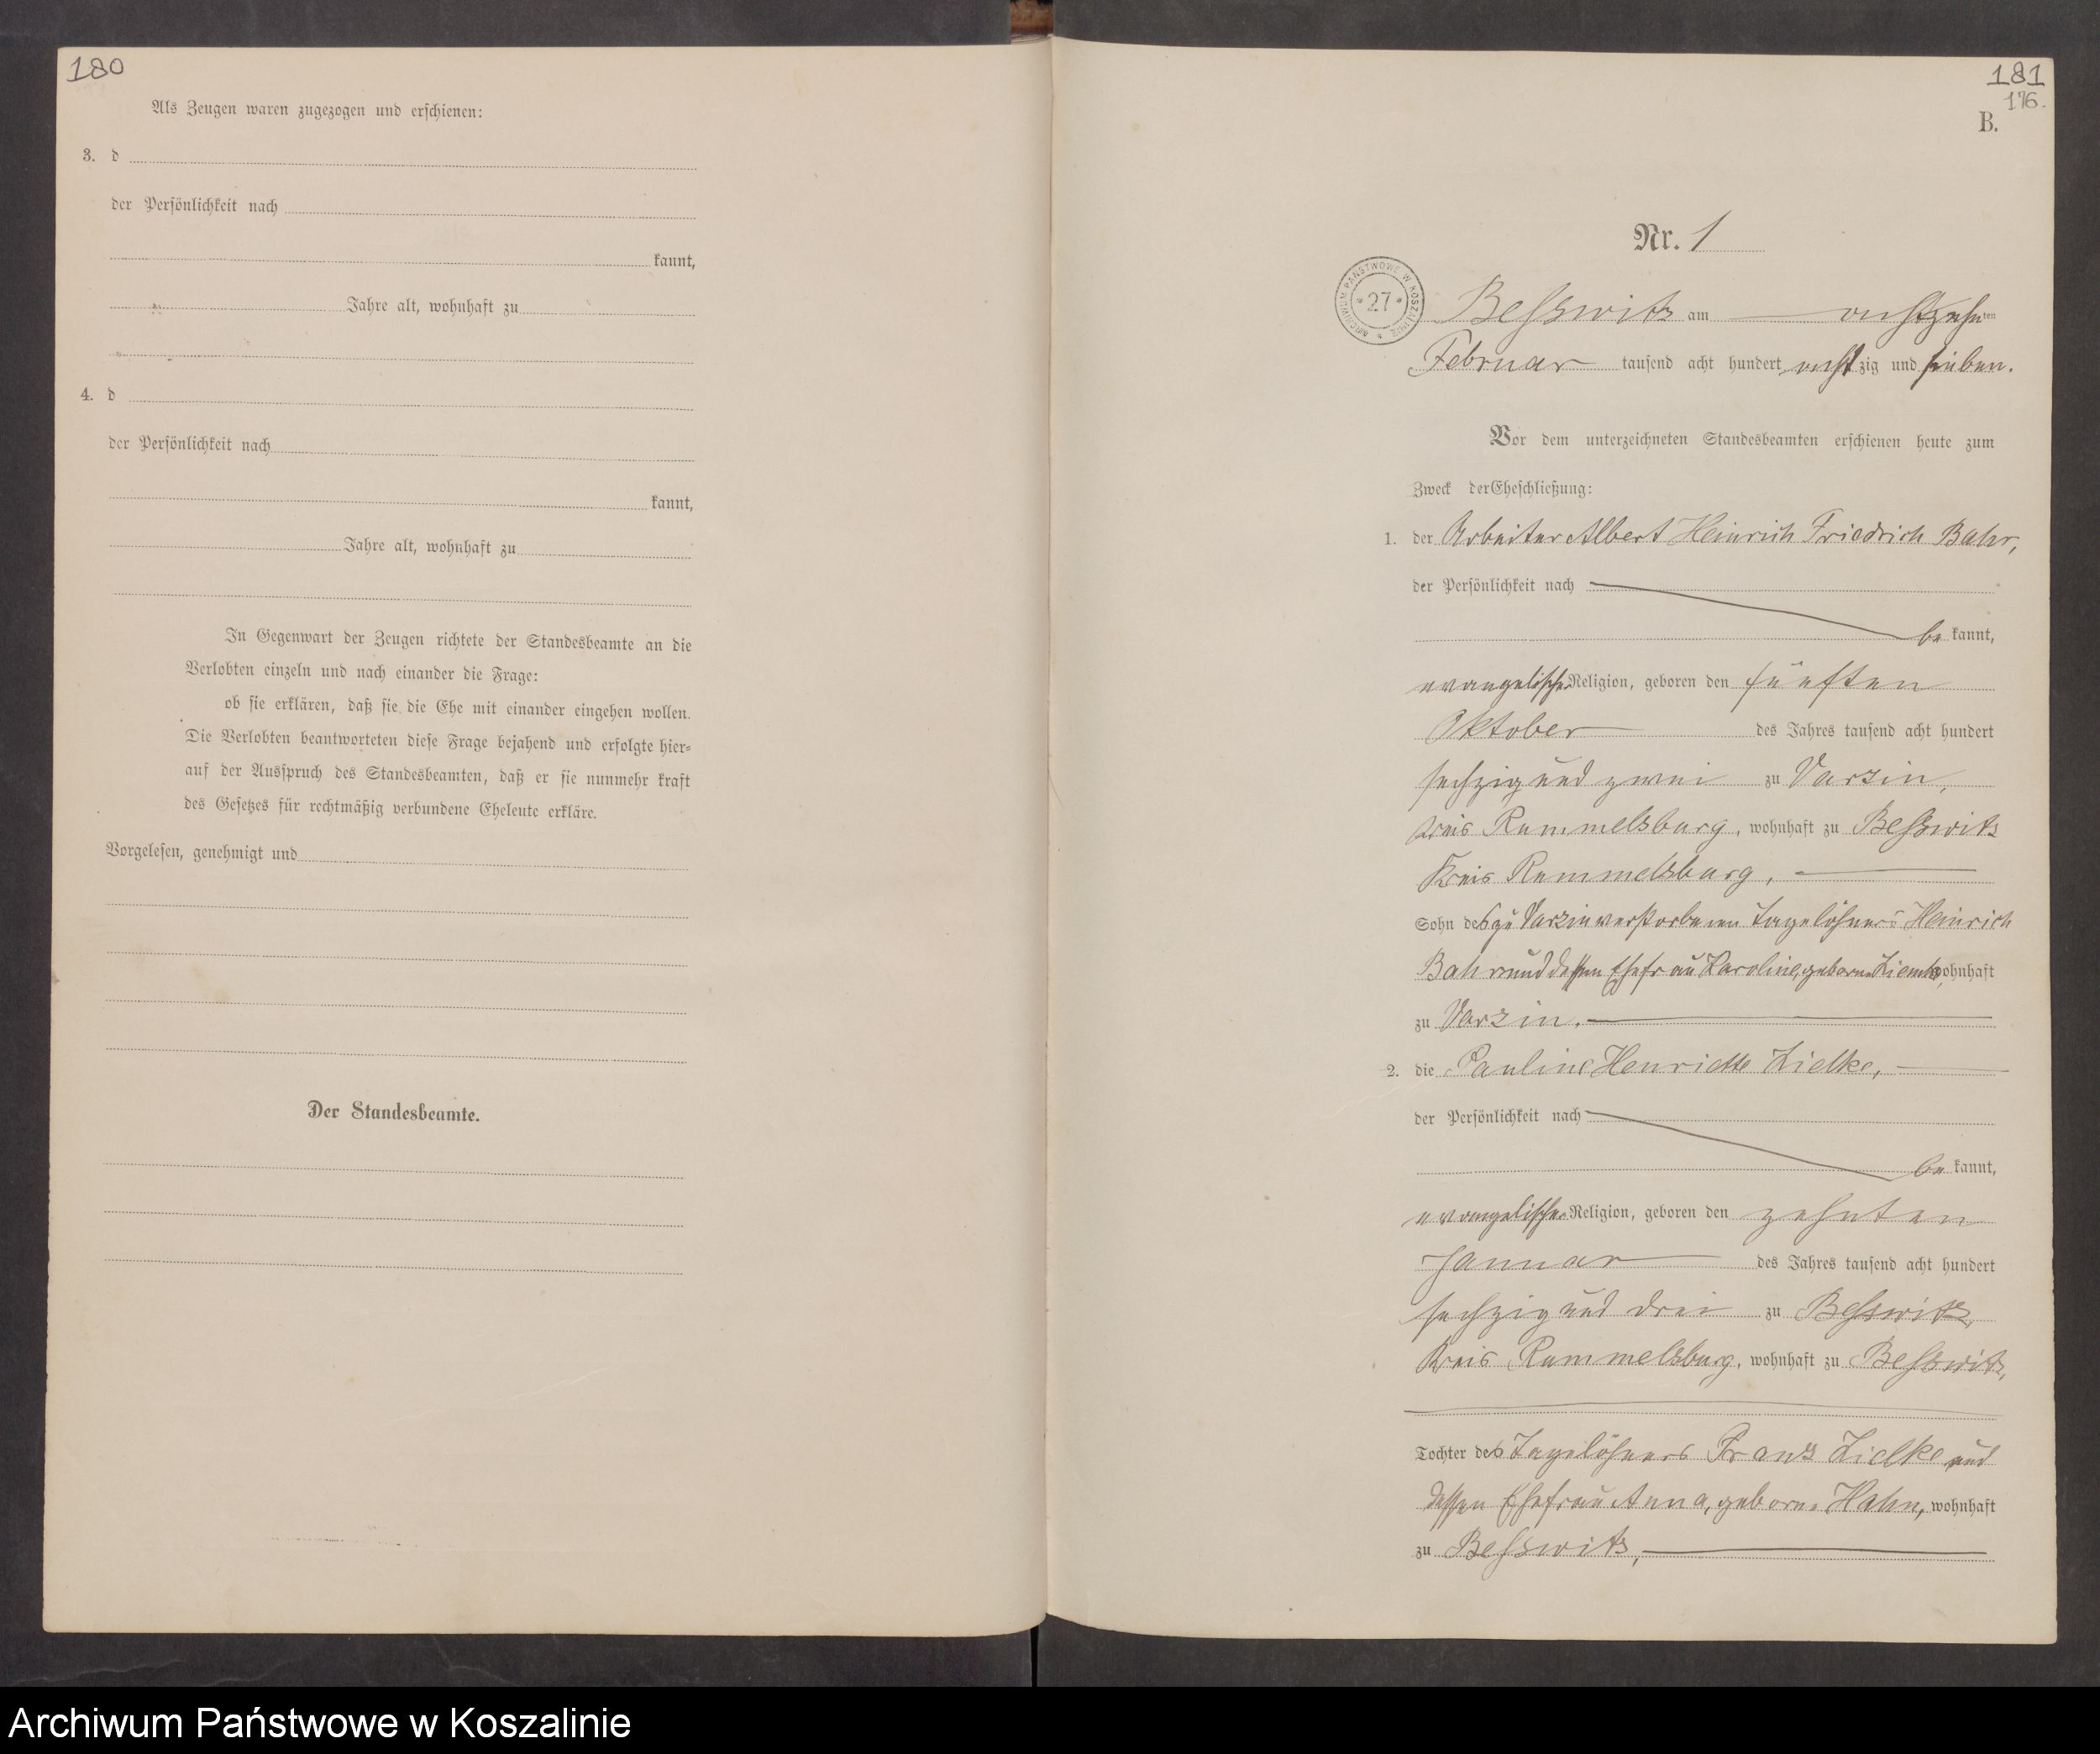 180
Als Zeugen waren zugezogen und erschienen:
3. d
der Persönlichkeit nach
kannt,
Jahre alt, wohnhaft zu
4. d
der Persönlichkeit nach
kannt,
Jahre alt, wohnhaft zu
In Gegenwart der Zeugen richtete der Standesbeamte an die
Verlobten einzeln und nach einander die Frage:
ob sie erklären, daß sie die Ehe mit einander eingehen wollen.
Die Verlobten beantworteten diese Frage bejahend und erfolgte hier-
auf der Ausspruch des Standesbeamten, daß er sie nunmehr kraft
des Gesetzes für rechtmäßig verbundene Eheleute erkläre.
Vorgelesen, genehmigt und
Der Standesbeamte.
181
176.
B.
Nr. 1
ARCHIWUM PAŃSTWOWE W KOSZALINIE
* 27 *
Besswitz am achtzehnten
Februar tausend acht hundert achtzig und sieben.
Vor dem unterzeichneten Standesbeamten erschienen heute zum
Zweck der Eheschließung:
1. der Arbeiter Albert Heinrich Friedrich Bahr,
der Persönlichkeit nach
bekannt,
evangelischer Religion, geboren den fünften
Oktober des Jahres tausend acht hundert
sechzig und zwei zu Varzin,
Kreis Rummelsburg, wohnhaft zu Besswitz
Kreis Rummelsburg,
Sohn des zu Varzin verstorbenen Tagelöhners Heinrich
Bahr und dessen Ehefrau Karoline, geborne wohnhaft
zu Varzin.
2. die Pauline Henriette Zielke,
der Persönlichkeit nach
bekannt,
evangelischer Religion, geboren den zehnten
Januar des Jahres tausend acht hundert
sechzig und drei zu Besswitz,
Kreis Rummelsburg, wohnhaft zu Besswitz,
Tochter des Tagelöhners Franz Zielke und
dessen Ehefrau Anna, geborne Hahn, wohnhaft
zu Besswitz,
Archiwum Państwowe w Koszalinie